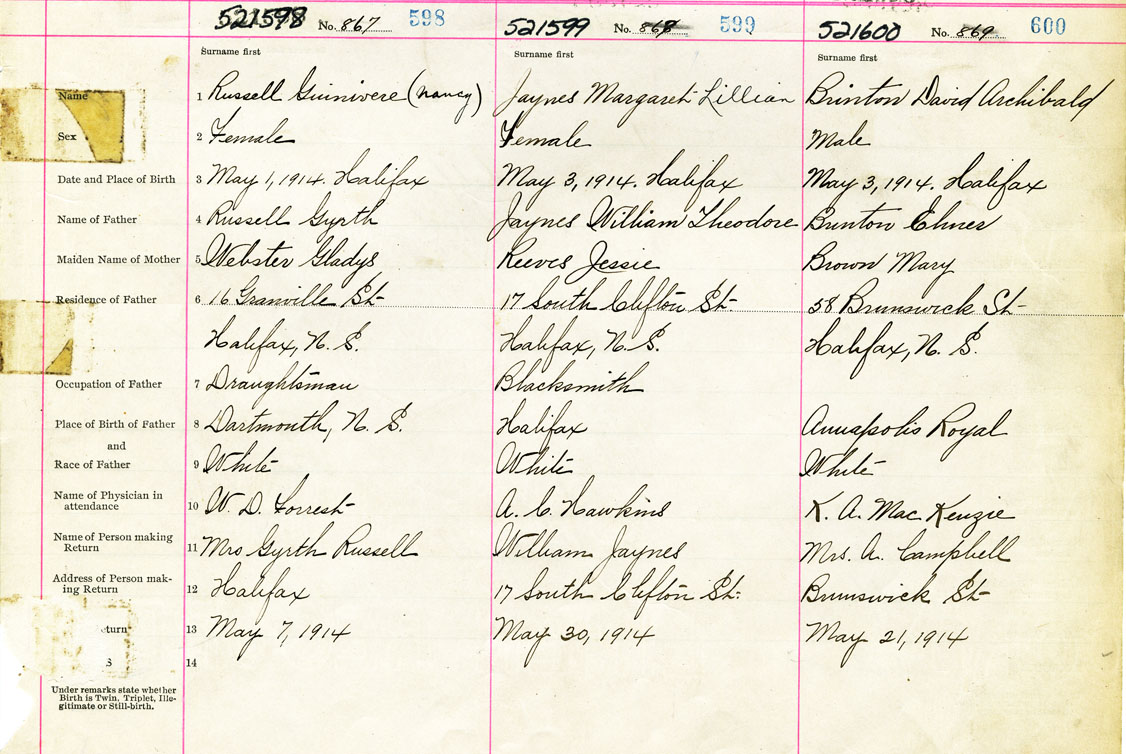 521598 No. 867 598 521599 No. 868 599 521600 No. 869 600
Surname first Surname first Surname first
Name 1 Russell Guinivere (Nancy) Jaynes Margaret Lillian Brinton David Archibald
Sex 2 Female Female Male
Date and Place of Birth 3 May 1, 1914. Halifax May 3, 1914. Halifax May 3, 1914. Halifax
Name of Father 4 Russell Gyrth Jaynes William Theodore Brinton Elmer
Maiden Name of Mother 5 Webster Gladys Reeves Jessie Brown Mary
Residence of Father 6 16 Granville St 17 South Clifton St. 58 Brunswick St
Halifax, N. S. Halifax, N. S. Halifax, N. S.
Occupation of Father 7 Draughtsman Blacksmith
Place of Birth of Father 8 Dartmouth, N. S. Halifax Annapolis Royal
and
Race of Father 9 White White White
Name of Physician in
attendance 10 W. D. Forrest A. C. Hawkins K. A. Mac Kenzie
Name of Person making
Return 11 Mrs Gyrth Russell William Jaynes Mrs. A. Campbell
Address of Person mak-
ing Return 12 Halifax 17 South Clifton St. Brunswick St
eturn 13 May 7, 1914 May 30, 1914 May 21, 1914
s 14
Under remarks state whether
Birth is Twin, Triplet, Ille-
gitimate or Still-birth.